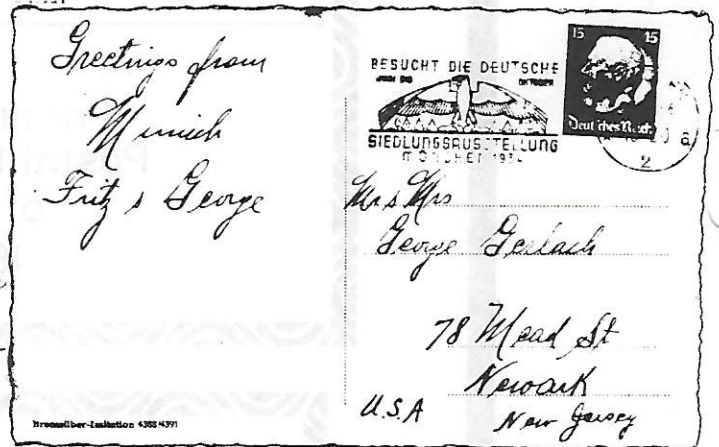 Greetings from
Munich
Fritz & George
BESUCHT DIE DEUTSCHE
JUNI BIS OKTOBER
SIEDLUNGSAUSSTELLUNG
MÜNCHEN 1934
15 15
Deutsches Reich
2
a
Mr & Mrs
George Gerlach
78 Mead St
Newark
U.S.A New Jersey
Bromsilber-Imitation 4388/4391